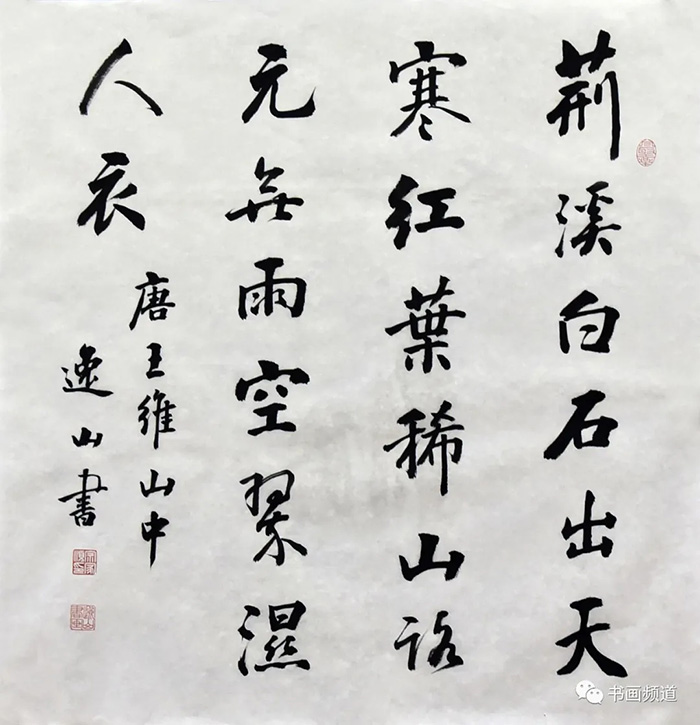 荆溪白石出天
寒红葉稀山路
元無雨空翠濕
人衣
唐王維山中
逸山書
书画频道